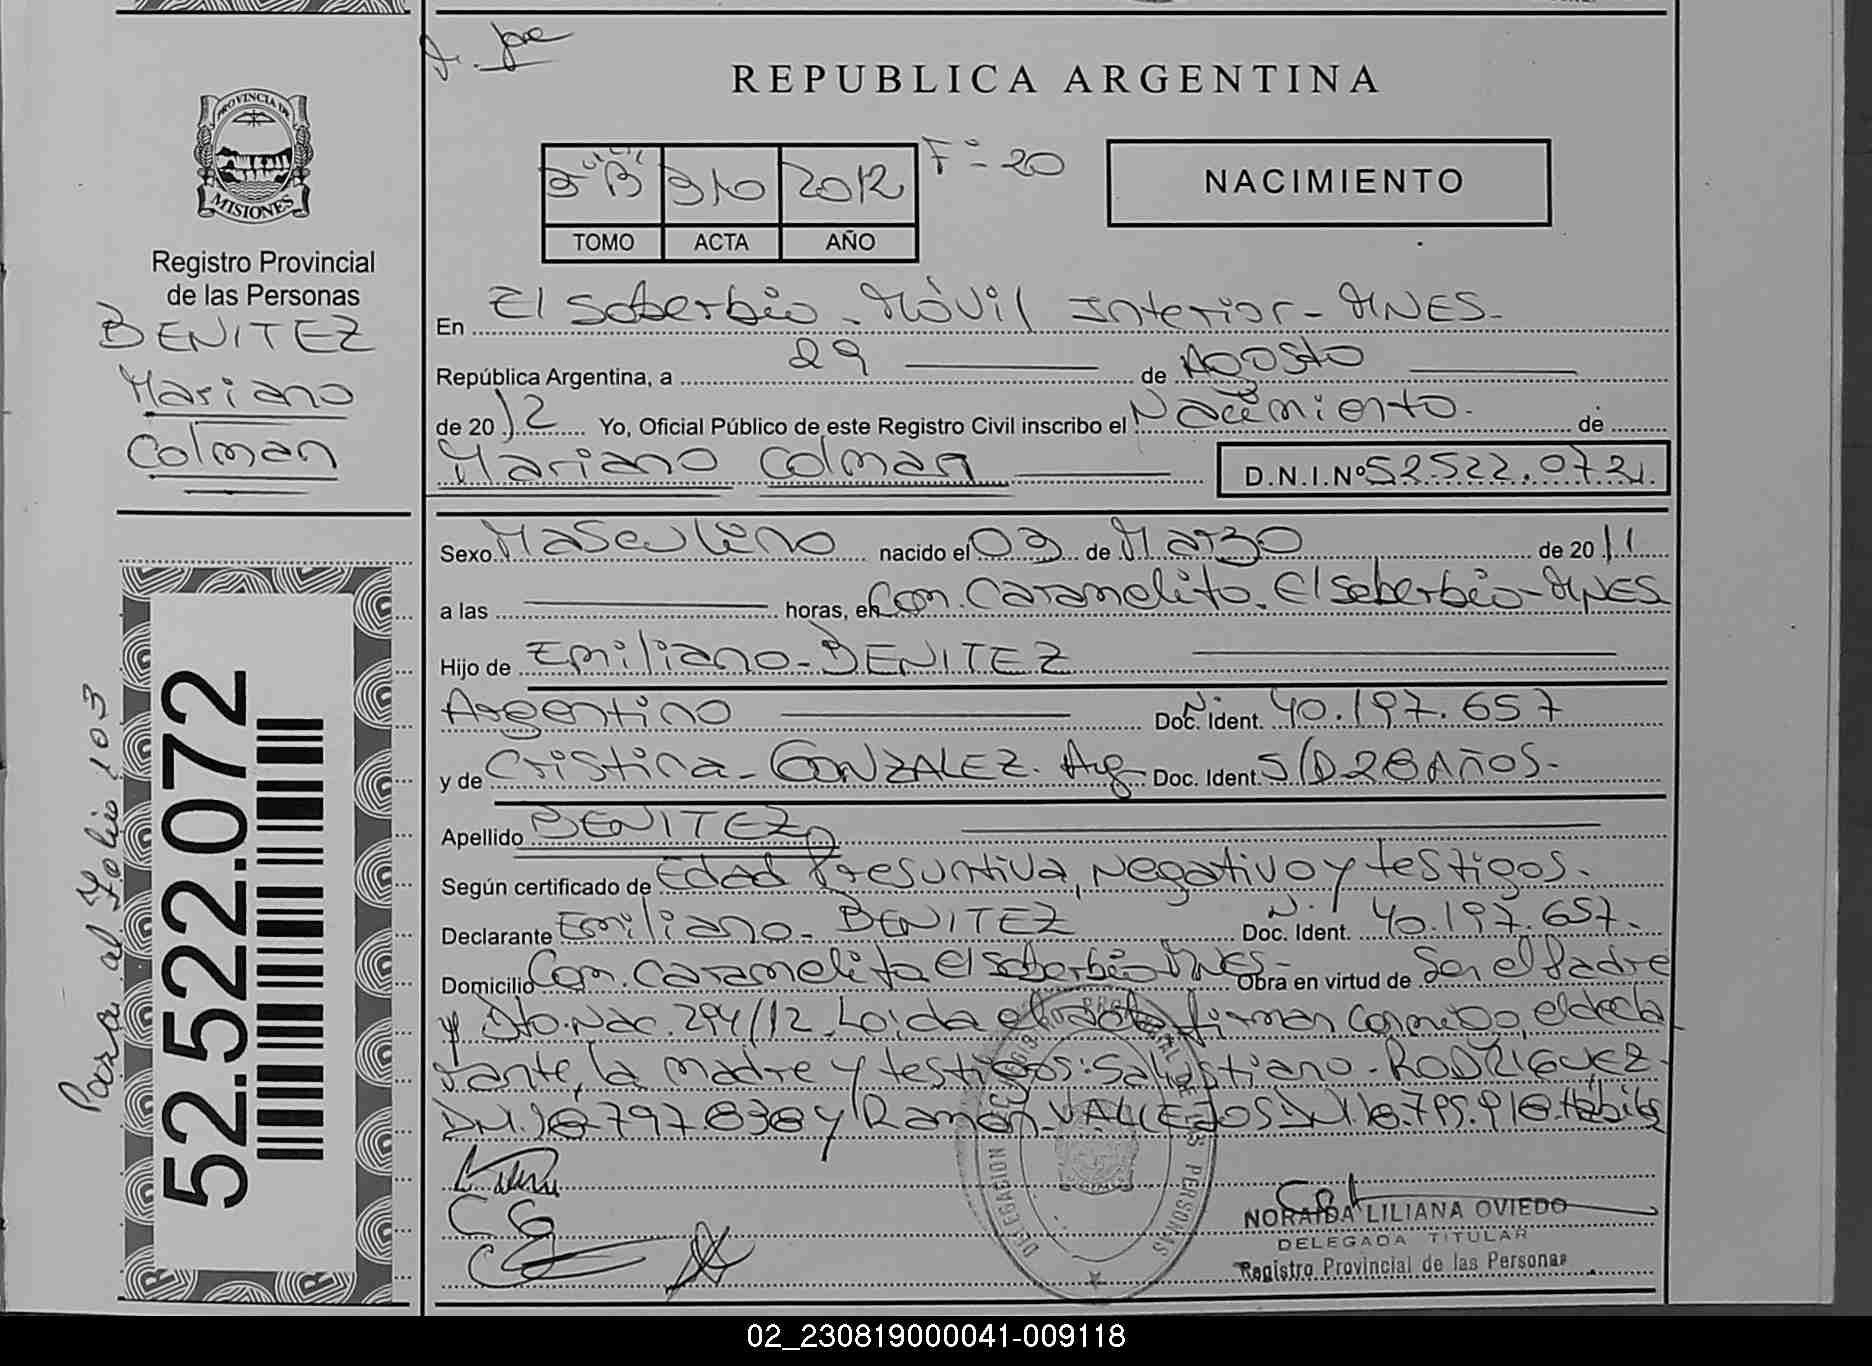 REPUBLICA ARGENTINA
PROVINCIA DE
MISIONES
Registro Provincial
de las Personas
BENITEZ
Mariano
Colman
52.522.072
Pasa al Folio 103
"B" 310 2012 Fº = 20
TOMO ACTA AÑO
NACIMIENTO
En El Soberbio - Móvil Interior - MNES -
República Argentina, a 29 de Agosto
de 2012 Yo, Oficial Público de este Registro Civil inscribo el Nacimiento de
Mariano Colman D.N.I.Nº 52.522.072.
Sexo Masculino nacido el 03 de Marzo de 2011
a las horas, en Com. Caramelito. El Soberbio - MNES
Hijo de Emiliano - BENITEZ
Argentino Doc. Ident. N. 40.197.657
y de Cristina - GONZALEZ. Arg Doc. Ident. S/D 28 AÑOS -
Apellido BENITEZ
Según certificado de Edad Presuntiva, Negativo y testigos.
Declarante Emiliano - BENITEZ Doc. Ident. N. 40.197.657.
Domicilio Com. Caramelito El Soberbio MNES - Obra en virtud de Ser el Padre
y Dto. Nac. 294/12. Leida el acta firman conmigo, el decla
rante, la madre y testigos: Salustiano - RODRIGUEZ -
DNI. 18.797.838 y Ramon VALLEJOS DNI. 18.795.918. Hábiles
C G
DELEGACION REGISTRO PROVINCIAL DE LAS PERSONAS
NORAIDA LILIANA OVIEDO
DELEGADA TITULAR
Registro Provincial de las Personas
02_230819000041-009118